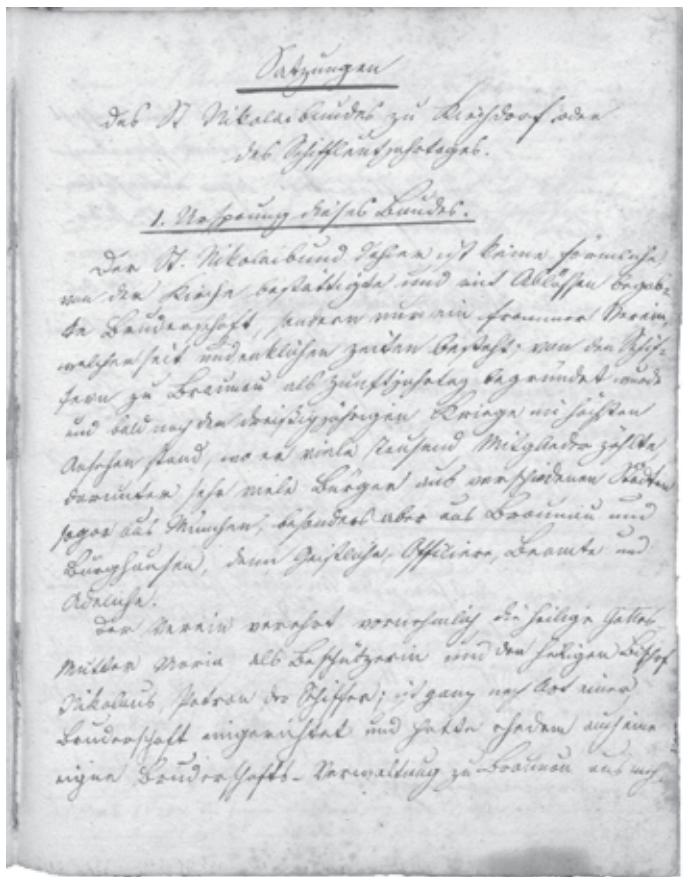 Satzungen
des St Nikolaibundes zu Kirchdorf oder
des Schiffleutjahrtages.
1. Ursprung dieses Bundes.
Der St. Nikolaibund dahier ist keine förmliche,
von der Kirche bestättigte und mit Ablässen begab-
te Bruderschaft, sondern nur ein frommer Verein,
welcher seit undenklichen Zeiten besteht; von den Schif-
fern zu Braunau als Zunftjahrtag begründet wurde
und bald nach dem dreißigjährigen Kriege im höchsten
Ansehen stand, wo er viele tausend Mitglieder zählte,
darunter sehr viele Bürger aus verschiedenen Städten
sogar aus München, besonders aber aus Braunau und
Burghausen, dann Geistliche, Offiziere, Beamte und
Adeliche.
Der Verein verehrt vornehmlich die heilige Gottes-
Mutter Maria als Beschützerin und den heiligen Bischof
Nikolaus, Patron der Schiffer; ist ganz nach Art einer
Bruderschaft eingerichtet und hatte ehedem auch eine
eigne Bruderschafts-Verwaltung zu Braunau